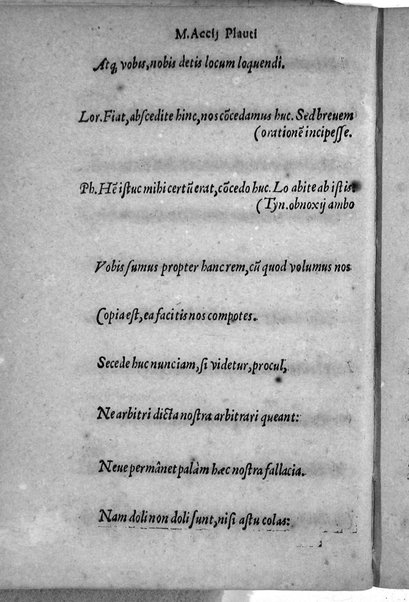 M. Accij Plauti
Atq, vobis, nobis detis locum loquendi.
Lor. Fiat, abscedite hinc, nos cōcedamus huc. Sed brevem
(orationē incipesse.
Ph. Hē istuc mihi certū erat, cōcedo huc. Lo abite ab istis
(Tyn. obnoxij ambo
Vobis sumus propter hanc rem, cū quod volumus nos
Copia est, ea facitis nos compotes.
Secede huc nunciam, si videtur, procul,
Ne arbitri dicta nostra arbitrari queant:
Neue permânet palàm hæc nostra fallacia.
Nam doli non doli sunt, nisi astu colas: